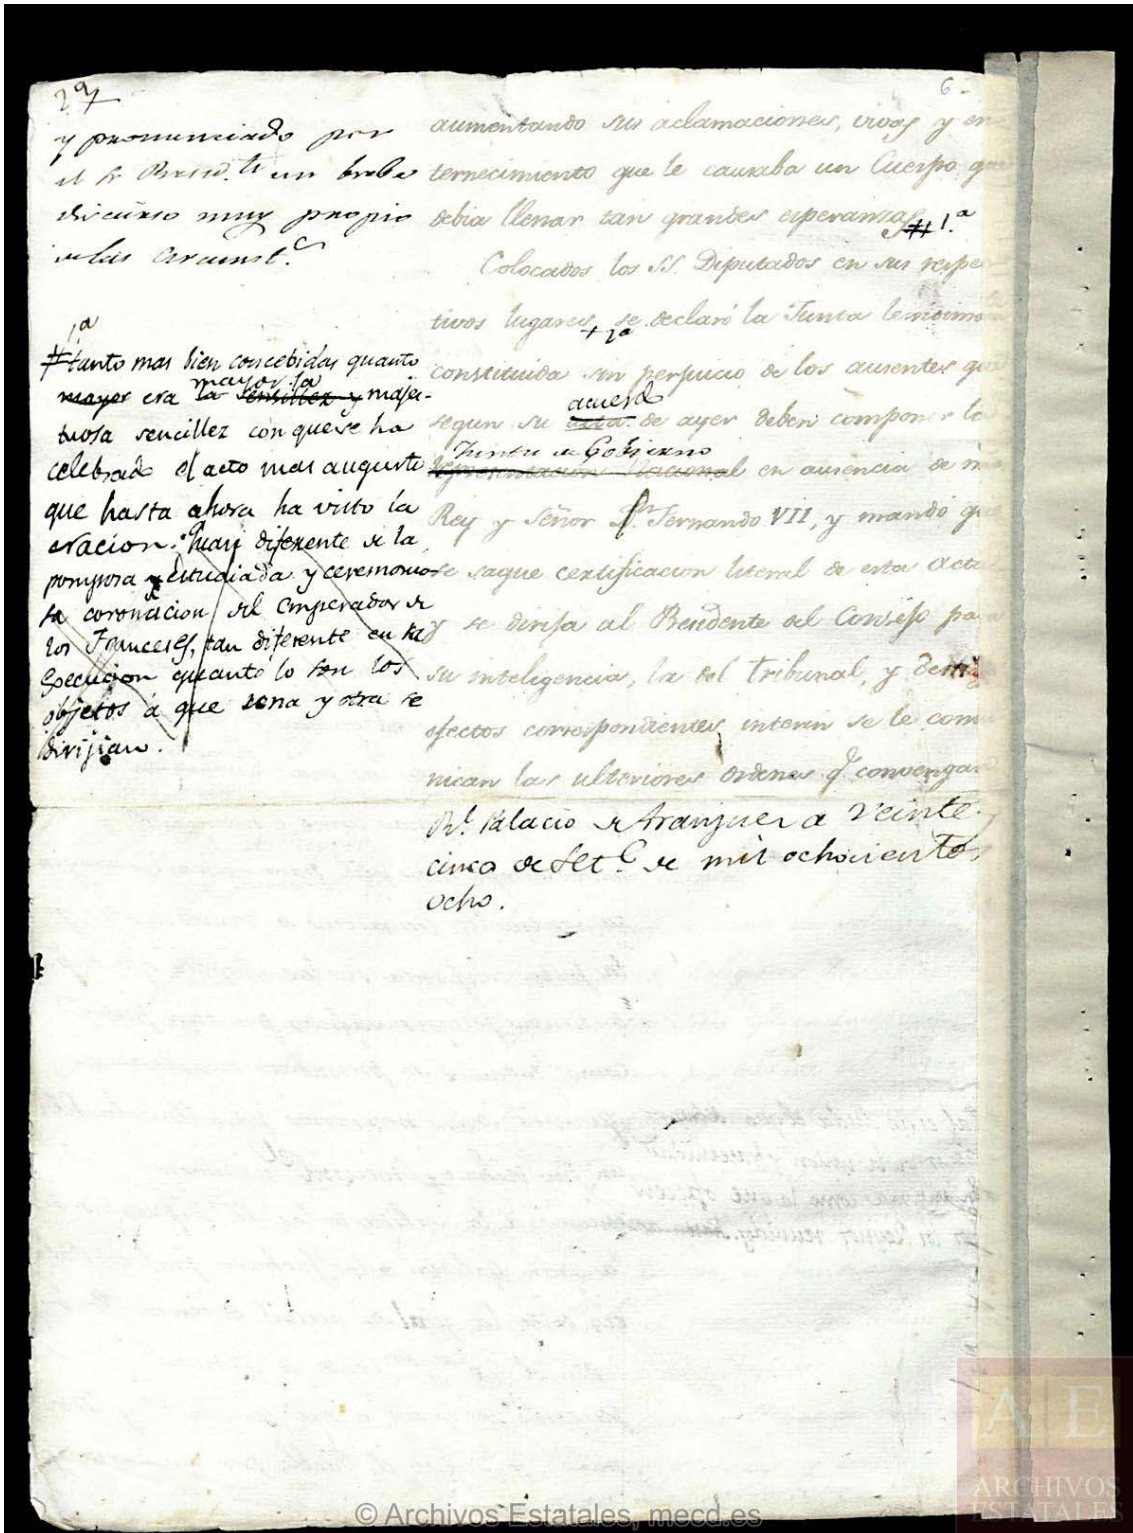 2ª
y pronunciado por
el Sr Presid.te un breve
discurso muy propio
de las circunst.s
1ª
# tanto mas bien concebidas quanto
mayor era la mayor la sencillez y majes-
tuosa sencillez con que se ha
celebrado el acto mas augusto
que hasta ahora ha visto la
nacion. Quan diferente de la
pomposa y estudiada y ceremonio-
sa coronacion del Emperador de
los Franceses, tan diferente en su
execucion quanto lo son los
objetos á que una y otra se
dirijian.
6
aumentando sus aclamaciones, vivas y en-
ternecimiento que le causaba un Cuerpo que
debia llenar tan grandes esperanzas # 1.ª
Colocados los SS. Diputados en sus respec-
tivos lugares + 2ª se declaró la Junta lexitimam
constituida sin perjuicio de los ausentes que
segun su acta acuerdo de ayer deben componer la
Junta de Gobierno
representacion Nacional en ausencia de nro
Rey y Señor D.n Fernando VII, y mandó que
se saque certificacion literal de esta Acta
y se dirija al Presidente del Consejo para
su inteligencia, la del tribunal, y demas
efectos correspondientes, interin se le comu-
nican las ulteriores ordenes q.e convengan
R.l Palacio de Aranjuez a veinte y
cinco de Set.e de mil ochocientos
ocho.
A E
ARCHIVOS
ESTATALES
© Archivos Estatales, mecd.es